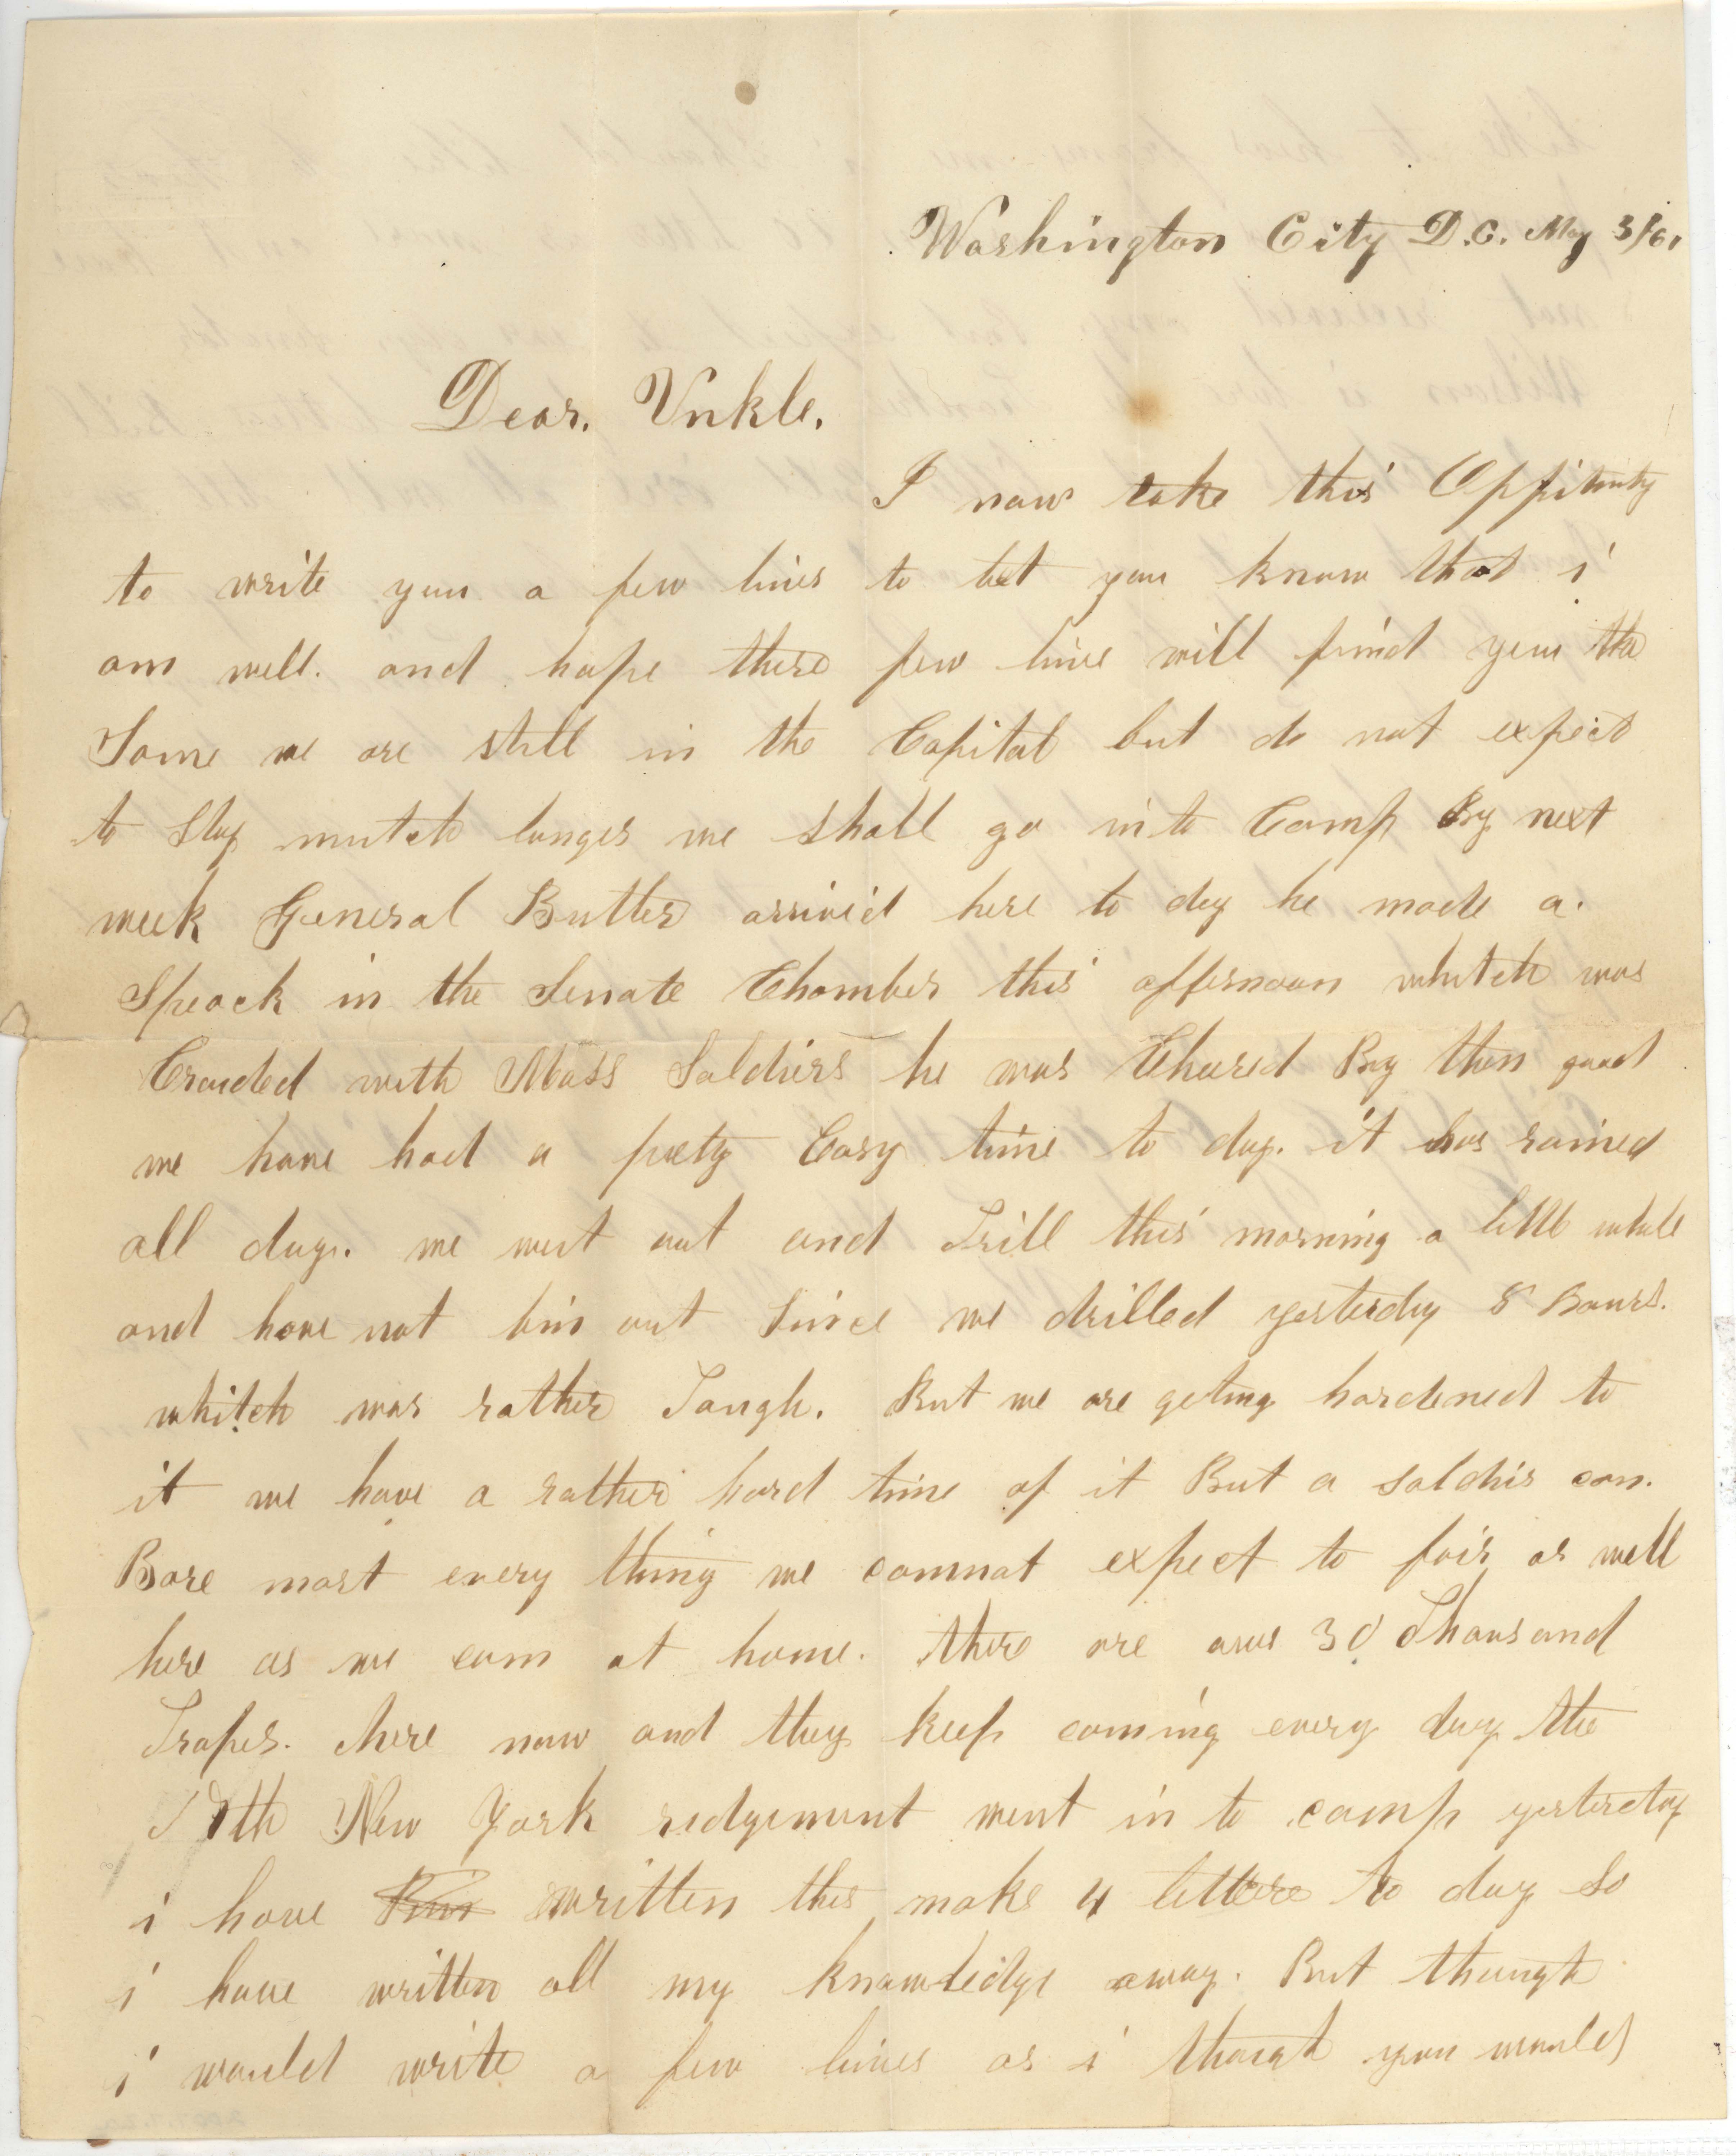 Washington City D.C. May 3/61
Dear. Unkle.
I now take this Oppitinty
to write you a few lines to let you know that i
am well. and hope these few line will find you the
Same we are still in the Capital but do not expect
to Stay mutch longer we shall go in to Camp By next
week General Butler arrived here to day he made a.
Speack in the Senate Chamber this affernoon whitch was
Crouded with Mass Soldiers he was Cheered By then good
we have had a prety Easy time to day. it has rained
all day. we went out and Drill this morning a little while
and have not bin out Since we drilled yesterday 8 hours.
whitch was rather Tough. But we are geting hardened to
it we have a rather hard time of it But a soldier can.
Bare most every thing we connot expect to fair as well
here as we can at home. there are over 30 Thousand
Tropes. here now and they keep coming every day the
th New York redgement went in to camp yesterday
i have written this make 4 letters to day So
i have written all my knowledge away. But though
i would write a few lines as i though you would